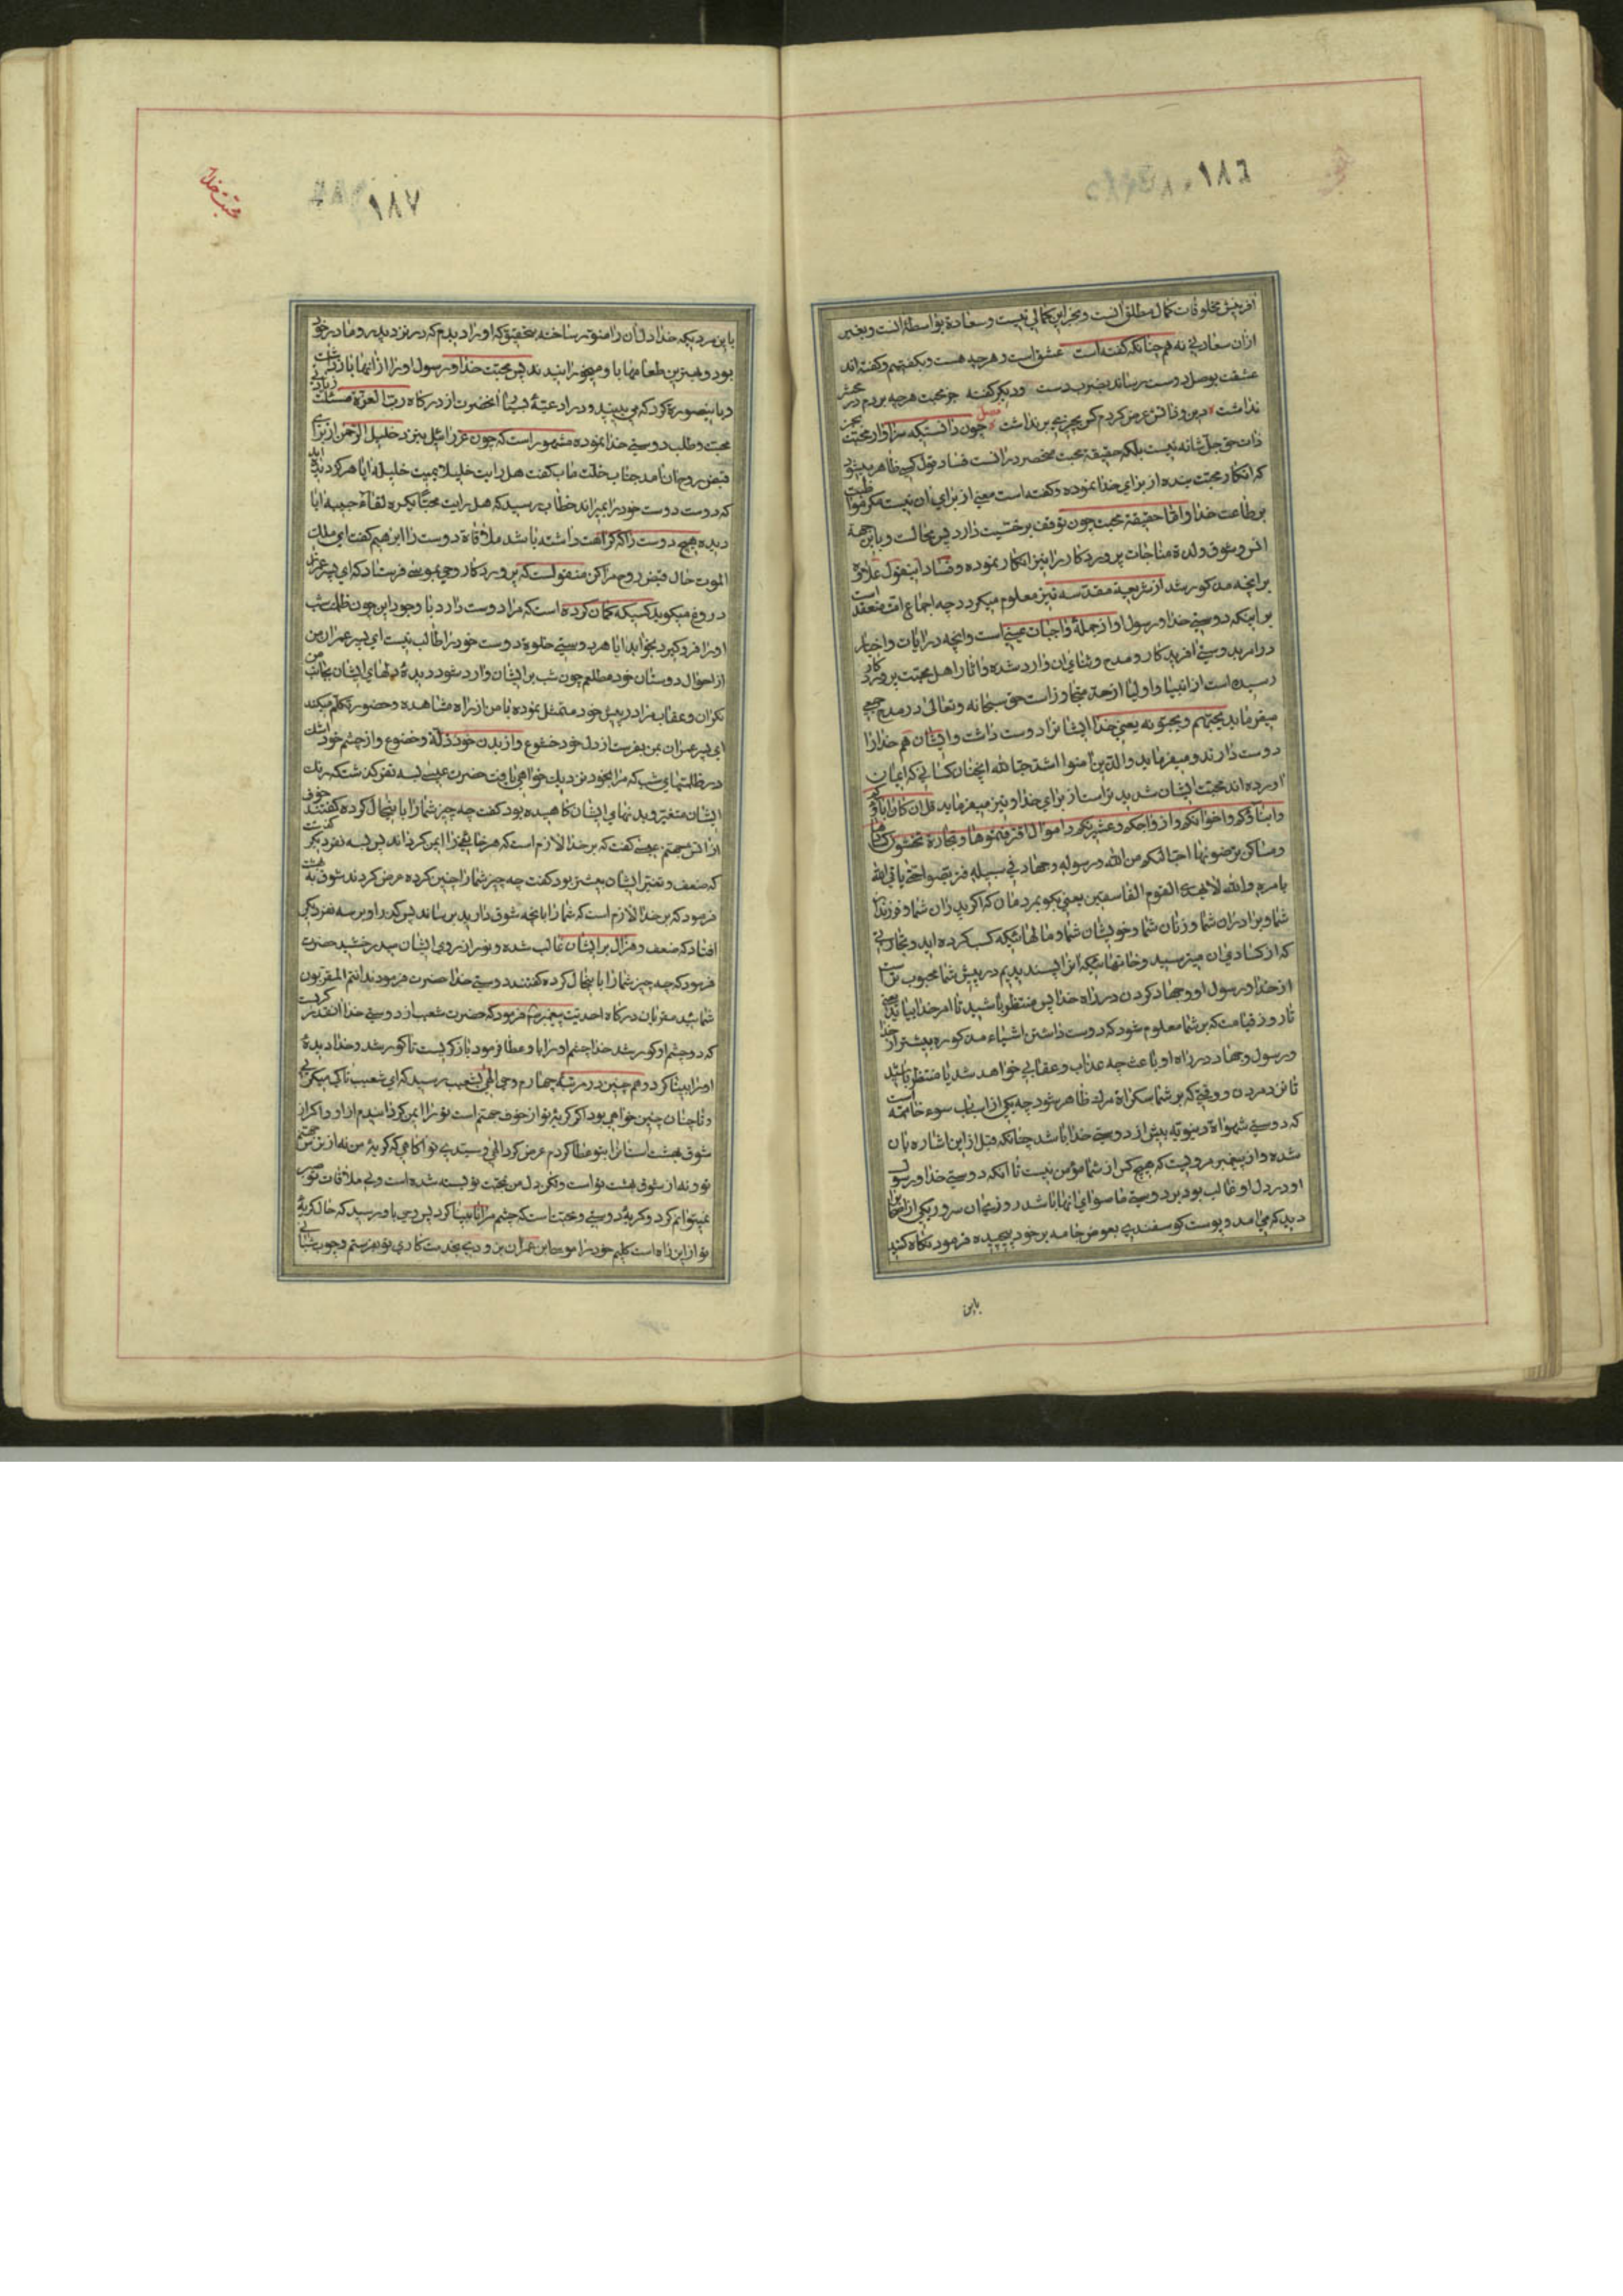 ١٨٦
آفرینش مخلوقات کمال مطلق انست و بجز این کمالی نیست و سعادة بواسطهٔ انست و بغیر
ازان سعادتی نه هم چنانکه گفته است عشق است و هرچه هست و بکفتیم و کفته اند
عشقت بوصل دوست رساند بضرب دست و دیگر کفته جز محبت هرچه بردم در محشر
نداشت دین و دانش عرض کردم کس بچیزی بر نداشت فصل چون دانستیکه سزاوار محبت بجز
ذات حق جل شانه نیست بلکه حقیقة محبت منحصر در انست فساد قول کسی ظاهر میشود
که انکار محبت بنده از برای خدا نموده و کفته است معنی از برای ان نیست مکر مواظبت
بر طاعت خدا و اما حقیقة محبت چون توقف بر جنسیت دارد پس محالست و باین جهة
انس و شوق و لذة مناجات پروردکار را نیز انکار نموده و فساد اینقول علاوه
بر انچه مذکور شد از شریعة مقدسه نیز معلوم میکردد چه اجماع امت منعقد است
بر اینکه دوستی خدا و رسول او از جملهٔ واجبات عینی است و انچه در ایات و اخبار
در امر بدوستی آفریدکار و مدح و ثنای ان وارد شده و اثار اهل محبت پروردکار
رسیده است از انبیا و اولیا از حد متجاوز است حق سبحانه و تعالی در مدح جمعی
میفرماید یحبهم و یحبونه یعنی خدا ایشانرا دوست داشت و ایشان هم خدا را
دوست دارند و میفرماید والذین آمنوا اشد حبا لله انچنان کسانی که ایمان
آورده اند محبت ایشان شدید تر است از برای خدا و نیز میفرماید قل ان کان اباؤکم
و ابناؤکم و اخوانکم و ازواجکم و عشیرتکم و اموال اقترفتموها و تجارة تخشون کسادها
و مساکن ترضونها احب الیکم من الله و رسوله و جهاد فی سبیله فتربصوا حتی یاتی الله
بامره والله لایهدی القوم الفاسقین یعنی بکو بمردمان که اکر پدران شما و فرزندان
شما و برادران شما و زنان شما و خویشان شما و مالهائیکه کسب کرده اید و تجارتی
که از کسادی ان میترسید و خانهائیکه انرا پسندیدیم در پیش شما محبوب تر است
از خدا و رسول او و جهاد کردن در راه خدا پس منتظر باشید تا امر خدا بیاید یعنی
تا روز قیامت که بر شما معلوم شود که دوست داشتن اشیاء مذکوره بیشتر از خدا
و رسول و جهاد در راه او باعث چه عذاب و عقابی خواهد شد یا منتظر باشید
تا نزد مردن و وقتی که بر شما سکراة مرك ظاهر شود چه یکی از اسباب سوء خاتمه است
که دوستی شهواة دنیویه بیش از دوستی خدا باشد چنانکه قبل از این اشاره بان
شده و از پیغمبر مرویست که هیچ کس از شما مؤمن نیست تا انکه دوستی خدا و رسول
او در دل او غالب بود بر دوستی ما سوای انها باشد روزی ان سرور یکی از اصحاب را
دید که می امد و پوست کوسفندی بعوض جامه بر خود پیچیده فرمود نکاه کنید
باین
محبت خدا
١٨٧
باین مردیکه خدا دل ان را منور ساخته بتحقیق که او را دیدم که در نزد پدر و مادر خود
بود و بهترین طعامها با و میخورانیدند پس محبت خدا و رسول او را از انها باز داشت
و باینصورة کرد که می بینید و در ادعیهٔ بسیار آنحضرت از درکاه رب العزة مسئلت زیادتی
محبت و طلب دوستی خدا نموده مشهور است که چون عزرائیل بنزد خلیل الرحمن از برای
قبض روح ان امد جناب خلت ماب کفت هل رایت خلیلا یمیت خلیله ایا هرکز دیدهٔ
که دوست دوست خود را بمیراند خطاب رسید که هل رایت محبا یکره لقاء حبیبه ایا
دیده هیچ دوست را که کراهت داشته باشد ملاقاة دوست را ابرهیم کفت ای ملك
الموت حال قبض روح مرا کن منقولست که پروردکار وحی بموسی فرستاد که ای پسر عمران
دروغ میکوید کسیکه کمان کرده است که مرا دوست دارد با وجود این چون ظلمت شب
او را فرو کیرد بخوابد ایا هر دوستی خلوة دوست خود را طالب نیست ای پسر عمران من
از احوال دوستان خود مطلعم چون شب بر ایشان وارد شود دیدهٔ دلهای ایشان بجانب من
نکران و عقاب مرا در پیش خود متمثل نموده با من از راه مشاهده و حضور تکلم میکنند
ای پسر عمران بمن بفرست از دل خود خشوع و از بدن خود ذلة و خضوع و از چشم خود اشك
در ظلمتهای شب که مرا بخود نزدیك خواهی یافت حضرت عیسی بسه نفر کذشت که رنك
ایشان متغیر و بدنهای ایشان کاهیده بود کفت چه چیز شما را باینحال کرده کفتند خوف
از آتش جهنم عیسی کفت که بر خدا لازم است که هر خائفی را ایمن کرداند پس بسه نفر دیکر کذشت
که ضعف و تغیر ایشان بیشتر بود کفت چه چیز شما را چنین کرده عرض کردند شوق بهشت
فرمود که بر خدا لازم است که شما را بانچه شوق دارید برساند پس کذر او بر سه نفر دیکر
افتاد که ضعف و هزال بر ایشان غالب شده و نور از روی ایشان میدرخشید حضرت
فرمود که چه چیز شما را باینحال کرده کفتند دوستی خدا حضرت فرمودند انتم المقربون
شمائید مقربان درکاه احدیت پیغمبر فرمود که حضرت شعیب از دوستی خدا انقدر کریست
که دو چشم او کور شد خدا چشم او را باو عطا فرمود باز کریست تا کور شد و خدا دیدهٔ
او را بینا کرد و هم چنین در مرتبهٔ چهارم وحی الهی بشعیب رسید که ای شعیب تا کی میکریی
و تا چنان چنین خواهی بود اکر کریهٔ تو از خوف جهنم است تو را ایمن کردانیدم از او و اکر از
شوق بهشت است انرا بتو عطا کردم عرض کرد الهی و سیدی تو اکاهی که کریهٔ من نه از ترس جهنم
تو و نه از شوق بهشت تو است ولکن دل من بمحبت تو بسته شده است و بی ملاقات تو صبر
نمیتوانم کرد و کریهٔ دوستی و محبت است که چشم مرا نابینا کرد پس وحی باو رسید که حال کریهٔ
تو از این راه است کلیم خود را موسی ابن عمران بزودی بخدمتکاری تو بفرستم و چوب شبانی